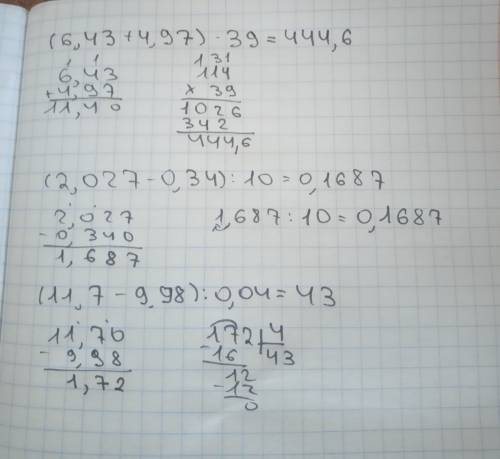 (6,43+4,97) · 39 = 444,6
6,43
+4,97
11,40
1 31
114
x 39
1026
342
444,6
(2,027 - 0,34) : 10 = 0,1687
2,027
- 0,340
1,687
1,687 : 10 = 0,1687
(11,7 - 9,98) : 0,04 = 43
11,70
- 9,98
1,72
172 4
- 16 43
12
- 12
0